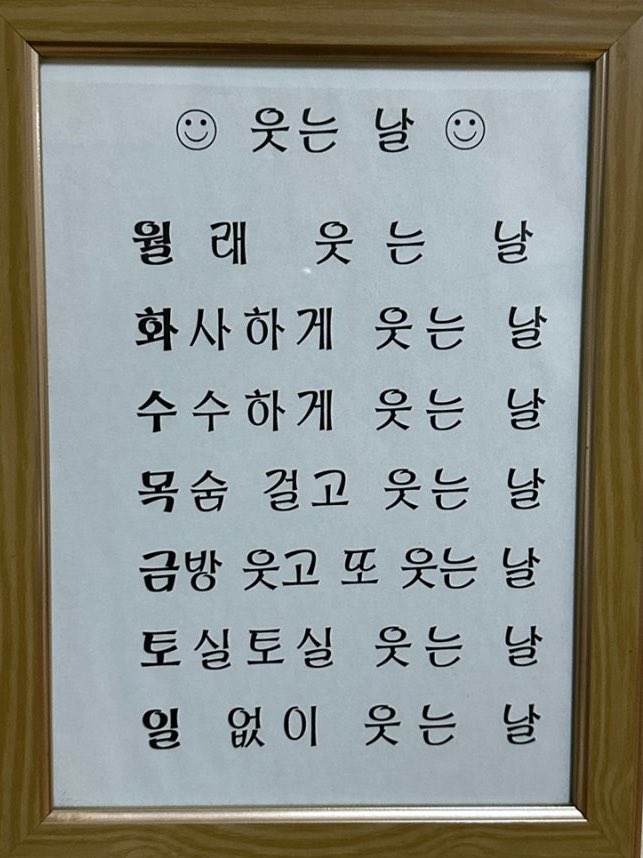 ☺ 웃는 날 ☺
월래 웃는 날
화사하게 웃는 날
수수하게 웃는 날
목숨 걸고 웃는 날
금방 웃고 또 웃는 날
토실토실 웃는 날
일 없이 웃는 날